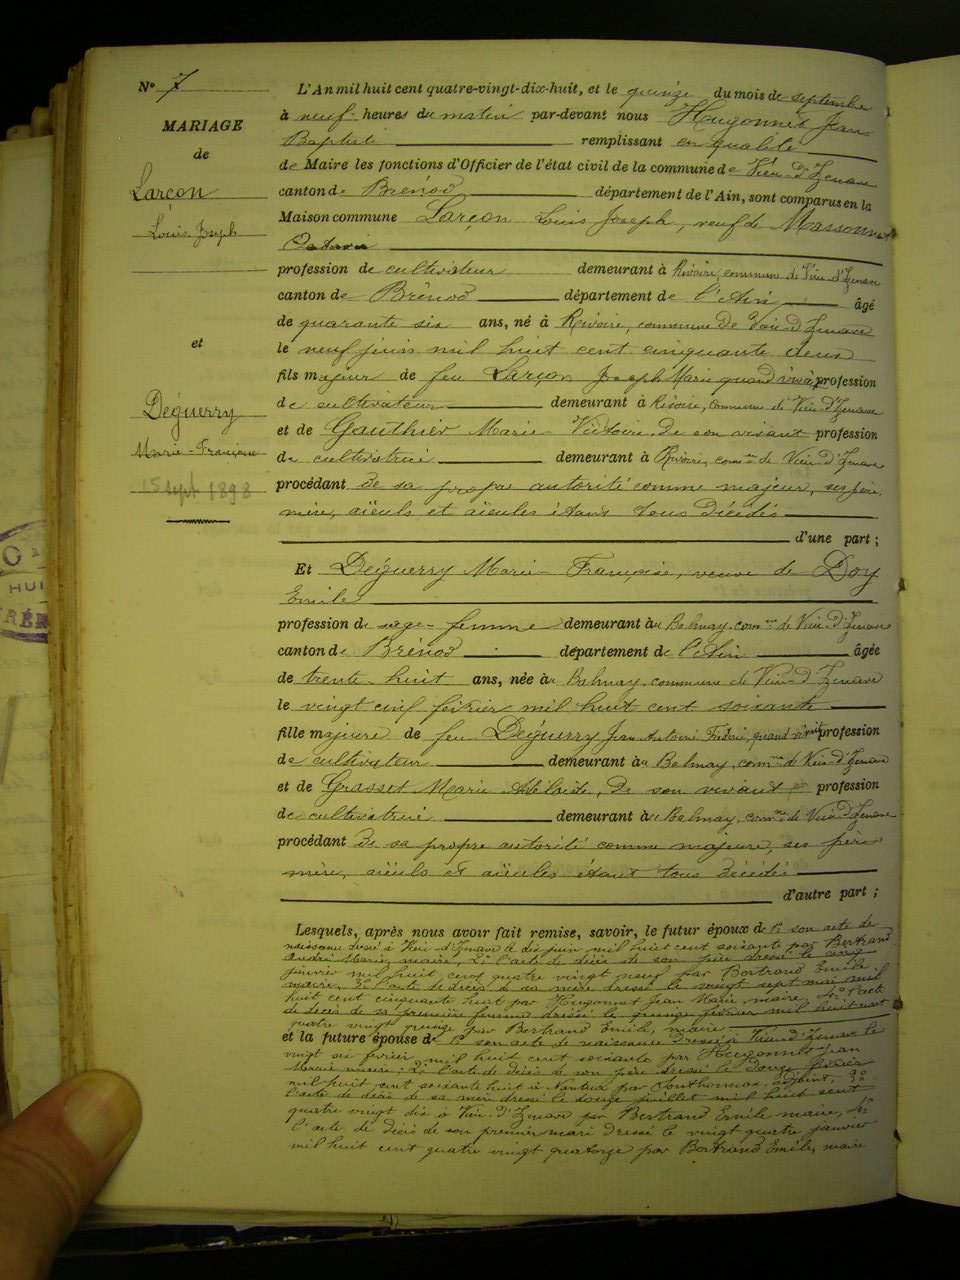 N° 7
MARIAGE
de
Larçon
Louis Joseph
et
Déguerry
Marie-Française
15 sept 1898
L'An mil huit cent quatre-vingt-dix-huit, et le quinze du mois de septembre
à neuf heures du matin par-devant nous Hugonnet Jean
Baptiste remplissant en qualité
de Maire les fonctions d'Officier de l'état civil de la commune de Vieu-d'Izenave
canton de Brénod département de l'Ain, sont comparus en la
Maison commune Larçon Louis Joseph, veuf de Massonnet
Octavie
profession de cultivateur demeurant à Rivoire, commune de Vieu-d'Izenave
canton de Brénod département de l'Ain âgé
de quarante six ans, né à Rivoire, commune de Vieu-d'Izenave
le neuf juin mil huit cent cinquante deux
fils majeur de feu Larçon Joseph Marie quand vivait profession
de cultivateur demeurant à Rivoire, commune de Vieu-d'Izenave
et de Gauthier Marie-Victoire, de son vivant profession
de cultivatrice demeurant à Rivoire, comne de Vieu-d'Izenave
procédant de sa propre autorité comme majeur, ses père,
mère, aïeuls et aïeules étant tous décédés
d'une part ;
Et Déguerry Marie-Française, veuve de Doy
Emile
profession de sage-femme demeurant au Balmay, comne de Vieu-d'Izenave
canton de Brénod département de l'Ain âgée
de trente-huit ans, née au Balmay, commune de Vieu-d'Izenave
le vingt cinq février mil huit cent soixante
fille majeure de feu Déguerry Jean Antoine Frédéric, quand vivait profession
de cultivateur demeurant au Balmay, comne de Vieu-d'Izenave
et de Grasset Marie Adélaïde, de son vivant profession
de cultivatrice demeurant au Balmay, comne de Vieu-d'Izenave
procédant de sa propre autorité comme majeure, ses père
mère, aïeuls et aïeules étant tous décédés
d'autre part ;
Lesquels, après nous avoir fait remise, savoir, le futur époux de 1° son acte de
naissance dressé à Vieu-d'Izenave le dix juin mil huit cent soixante par Bertrand
André Marie, maire, 2° l'acte de décès de son père dressé le cinq
janvier mil huit cent quatre vingt neuf par Bertrand Emile
maire, 3° l'acte de décès de sa mère dressé le vingt sept mai mil
huit cent cinquante huit par Hugonnet Jean Marie, maire, 4° l'acte
de décès de sa première femme dressé le quinze février mil huit cent
quatre vingt quinze par Bertrand Emile, maire
et la future épouse de 1° son acte de naissance dressé à Vieu-d'Izenave le
vingt six février mil huit cent soixante par Hugonnet Jean
Marie maire; 2° l'acte de décès de son père dressé le douze février
mil huit cent soixante huit à Nantua par adjoint, 3°
l'acte de décès de sa mère dressé le douze juillet mil huit cent
quatre vingt dix à Vieu-d'Izenave par Bertrand Emile, maire, 4°
l'acte de décès de son premier mari dressé le vingt quatre janvier
mil huit cent quatre vingt quatorze par Bertrand Emile, maire